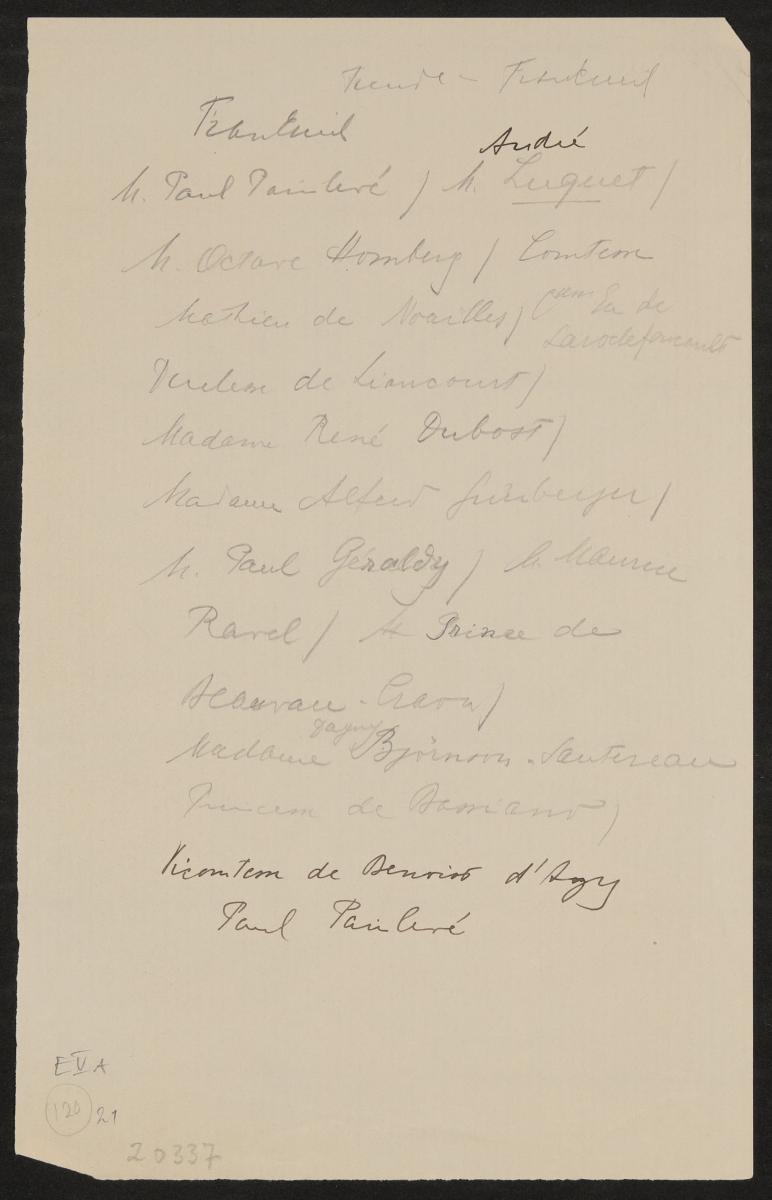 Franteuil
Franteuil
André
M. Paul Painlevé / M. Luquet /
M. Octave Homberg / Comtesse
Mathieu de Noailles /
de
Larochefoucault
de Liancourt /
Madame René Dubost /
Madame Alfred Grünberger /
M. Paul Géraldy / M. Maurice
Ravel / Prince de
Beauvau-Craon /
Dagny
Madame Björnson-Sautereau
Princesse de Bassiano /
Vicomtesse de Benoist d'Azy
Paul Painlevé
E V A
120 21
20337